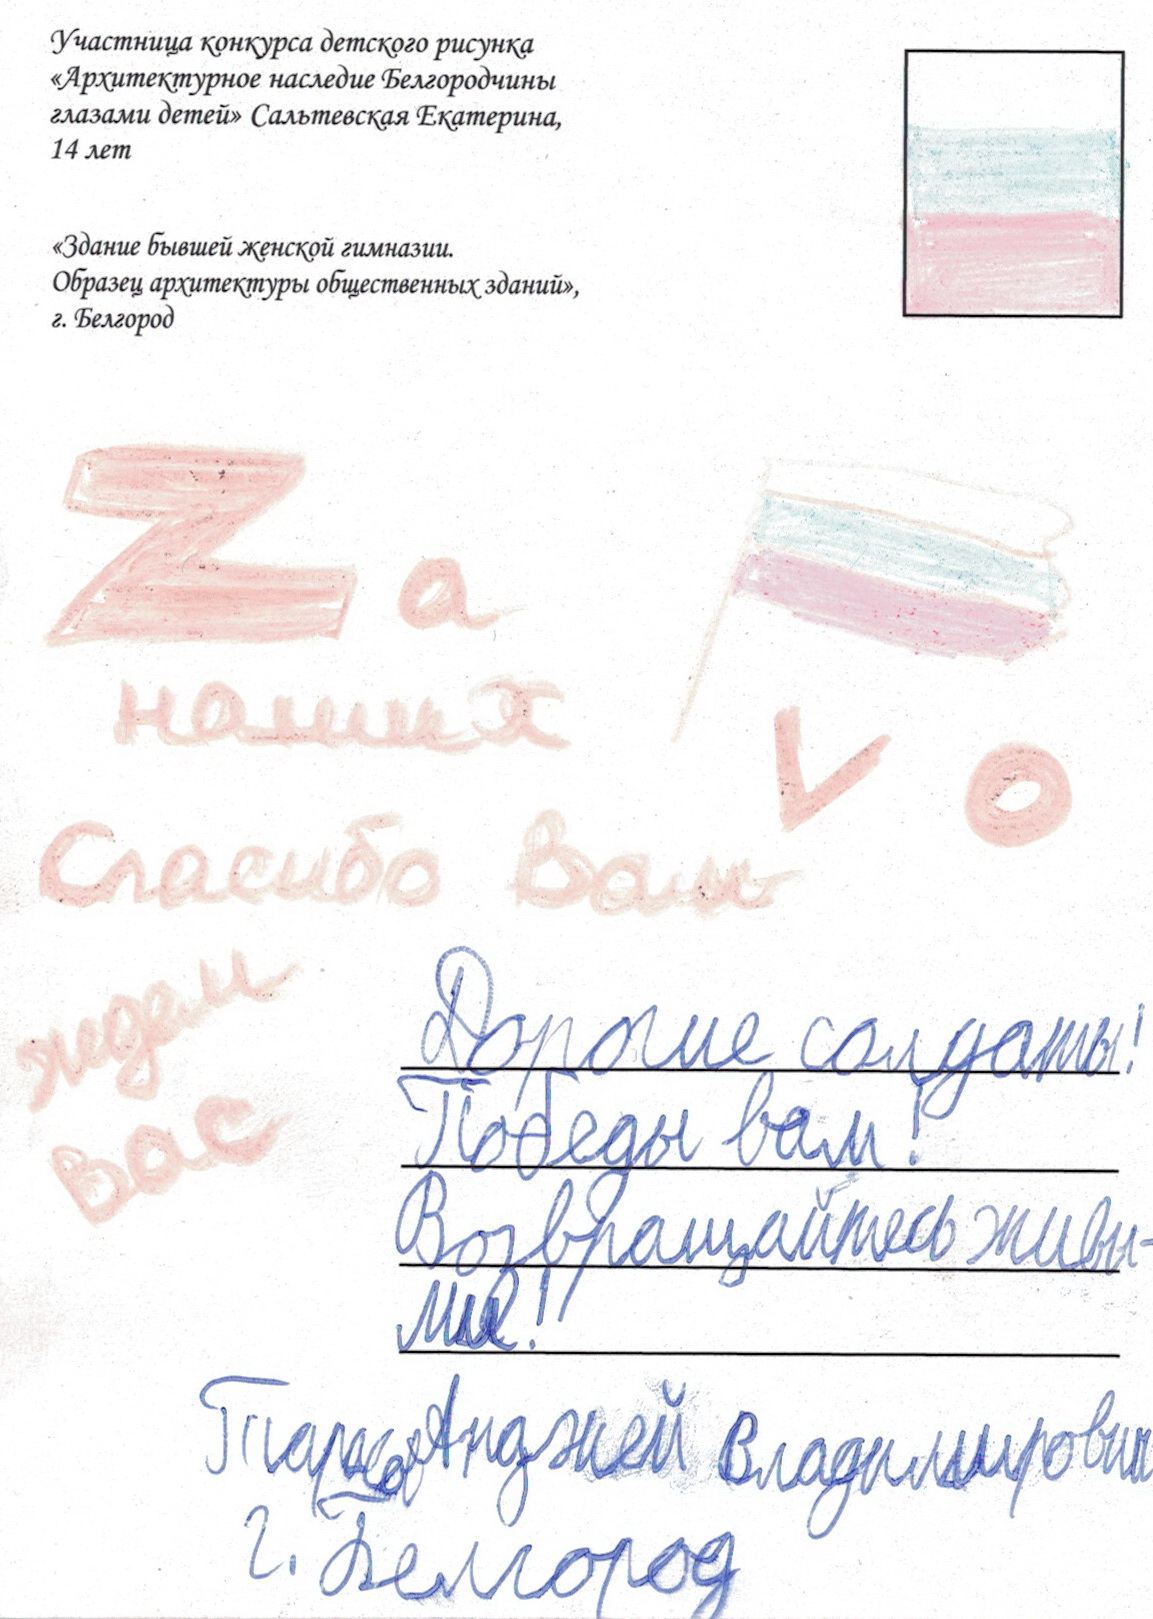 Участница конкурса детского рисунка
«Архитектурное наследие Белгородчины
глазами детей» Сальтевская Екатерина,
14 лет
«Здание бывшей женской гимназии.
Образец архитектуры общественных зданий»,
г. Белгород
Zа
наших
V O
Спасибо Вам
ждем
вас
Дорогие солдаты!
Победы вам!
Возвращайтесь живы-
ми!
Анджей Владимирович
г. Белгород